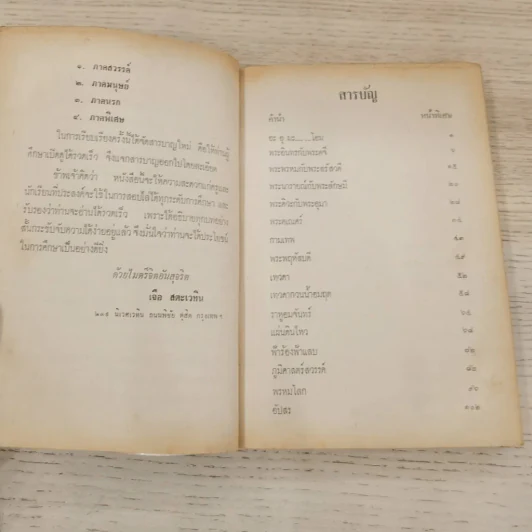 ๑. ภาคสวรรค์
๒. ภาคมนุษย์
๓. ภาคนรก
๔. ภาคพิเศษ
ในการเรียบเรียงครั้งนี้ได้จัดสารบาญใหม่ คือให้ท่านผู้
ศึกษาเปิดดูได้รวดเร็ว จึงแจกสารบาญออกไปโดยละเอียด
ข้าพเจ้าคิดว่า หนังสือนี้จะให้ความสะดวกแก่ครูและ
นักเรียนที่ประสงค์จะใช้ในการสอบไล่ได้ทุกระดับการศึกษา และ
รับรองว่าท่านจะอ่านได้รวดเร็ว เพราะได้อธิบายทุกบทอย่าง
สั้นกระชับจับความได้ง่ายอยู่แล้ว จึงมั่นใจว่าท่านจะได้ประโยชน์
ในการศึกษาเป็นอย่างดียิ่ง
ด้วยไมตรีจิตอันสุจริต
เจือ สตะเวทิน
๒๐๕ นิเวศเวทิน ถนนพิชัย ดุสิต กรุงเทพ ฯ
สารบัญ
คำนำ หน้าพิเศษ
อะ อุ มะ
พระอินทรกับพระศจี
พระพรหมกับพระสรัสวดี ๑๕
พระนารายณ์กับพระลักษมี ๒๐
พระศิวะกับพระอุมา ๒๘
พระคเณศร์
กามเทพ ๔๓
พระพฤหัสบดี
เทวดา ๕๒
เทวดากวนน้ำอมฤต ๕๘
ราหูอมจันทร์ ๖๕
แผ่นดินไหว ๖๘
ฟ้าร้องฟ้าแลบ
ภูมิศาสตร์สวรรค์
พรหมโลก
อัปสร